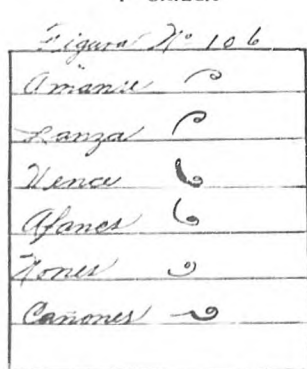 Figura Nº 106
Amanse
Lanza
Vence
Afanes
Nones
Cañones